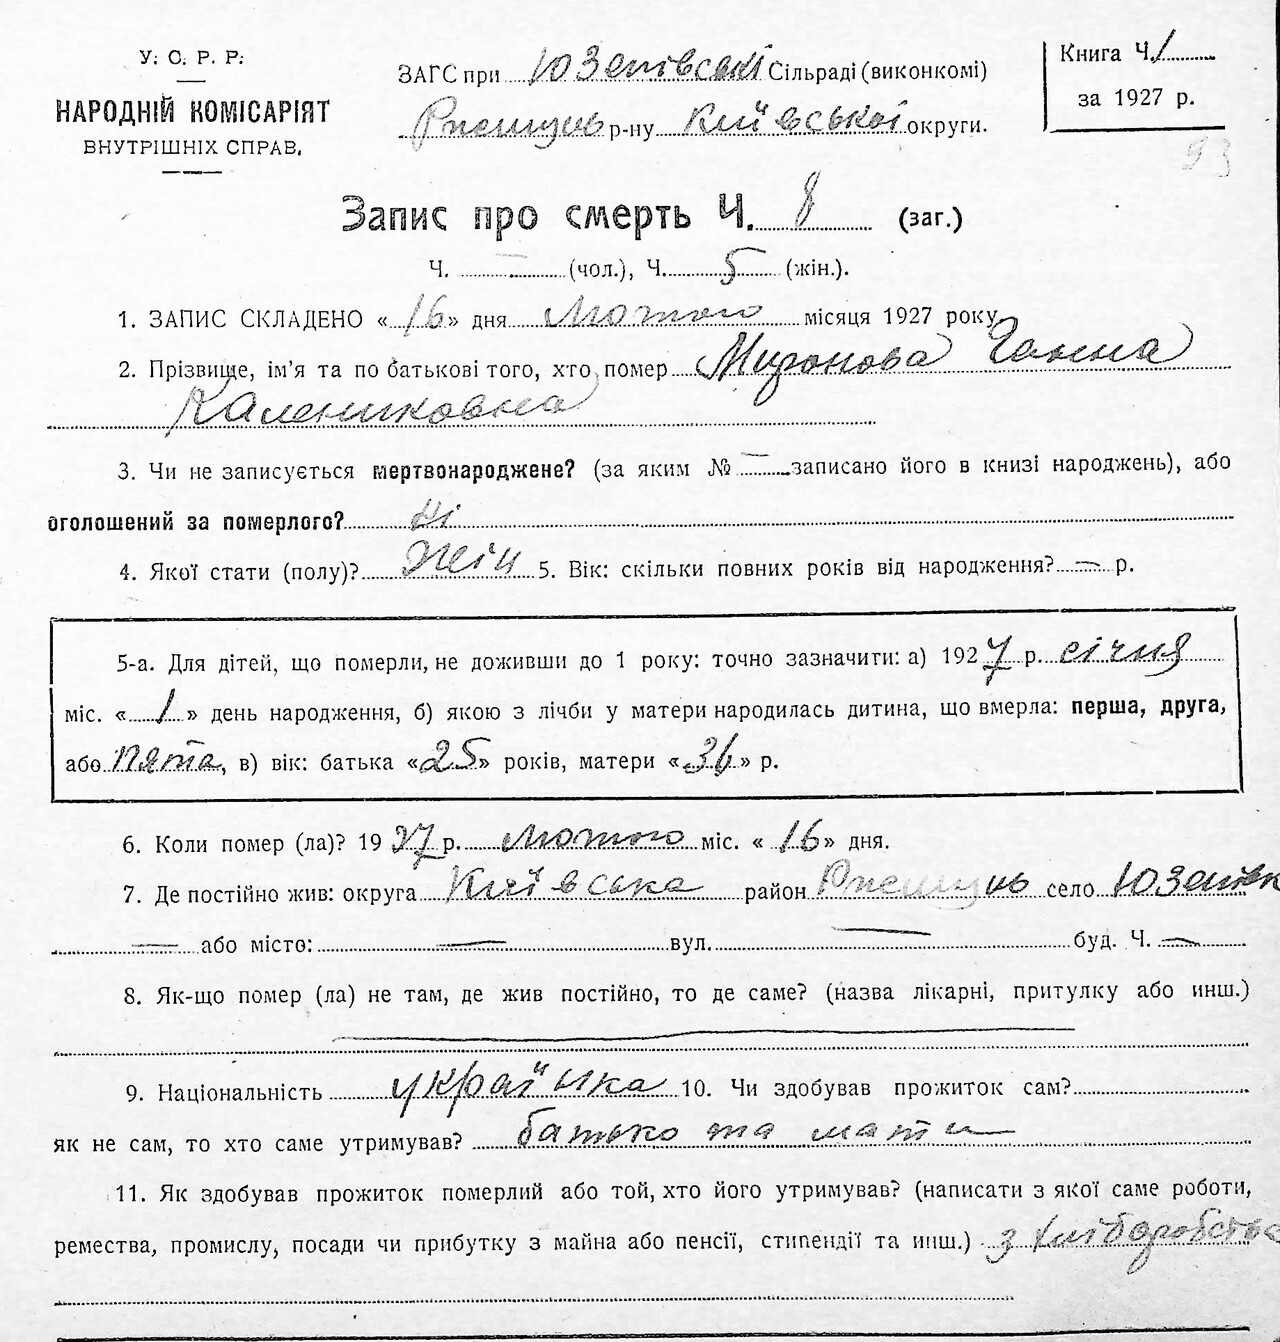 У. С. Р. Р.
НАРОДНІЙ КОМІСАРІЯТ
ВНУТРІШНІХ СПРАВ.
ЗАГС при Юзепівські Сільраді (виконкомі)
Ржищів р-ну Київської округи.
Книга Ч. 1
за 1927 р.
93
Запис про смерть Ч. 8 (заг.)
Ч. — (чол.), Ч. 5 (жін.).
1. ЗАПИС СКЛАДЕНО «16» дня Лютого місяця 1927 року
2. Прізвище, ім'я та по батькові того, хто помер Миронова Ганна
Калениковна
3. Чи не записується мертвонароджене? (за яким № — записано його в книзі народжень), або
оголошений за померлого? Ні
4. Якої стати (полу)? Жін 5. Вік: скільки повних років від народження? — р.
5-а. Для дітей, що померли, не доживши до 1 року: точно зазначити: а) 1927 р. січня
міс. «1» день народження, б) якою з лічби у матери народилась дитина, що вмерла: перша, друга,
або пята, в) вік: батька «25» років, матери «36» р.
6. Коли помер (ла)? 1927 р. лютого міс. «16» дня.
7. Де постійно жив: округа Київська район Ржищів село Юзепівк
— або місто: — вул. — буд. Ч. —
8. Як-що помер (ла) не там, де жив постійно, то де саме? (назва лікарні, притулку або инш.)
9. Національність українка 10. Чи здобував прожиток сам?
як не сам, то хто саме утримував? батько та мати
11. Як здобував прожиток померлий або той, хто його утримував? (написати з якої саме роботи,
ремества, промислу, посади чи прибутку з майна або пенсії, стипендії та инш.) з хліборобства